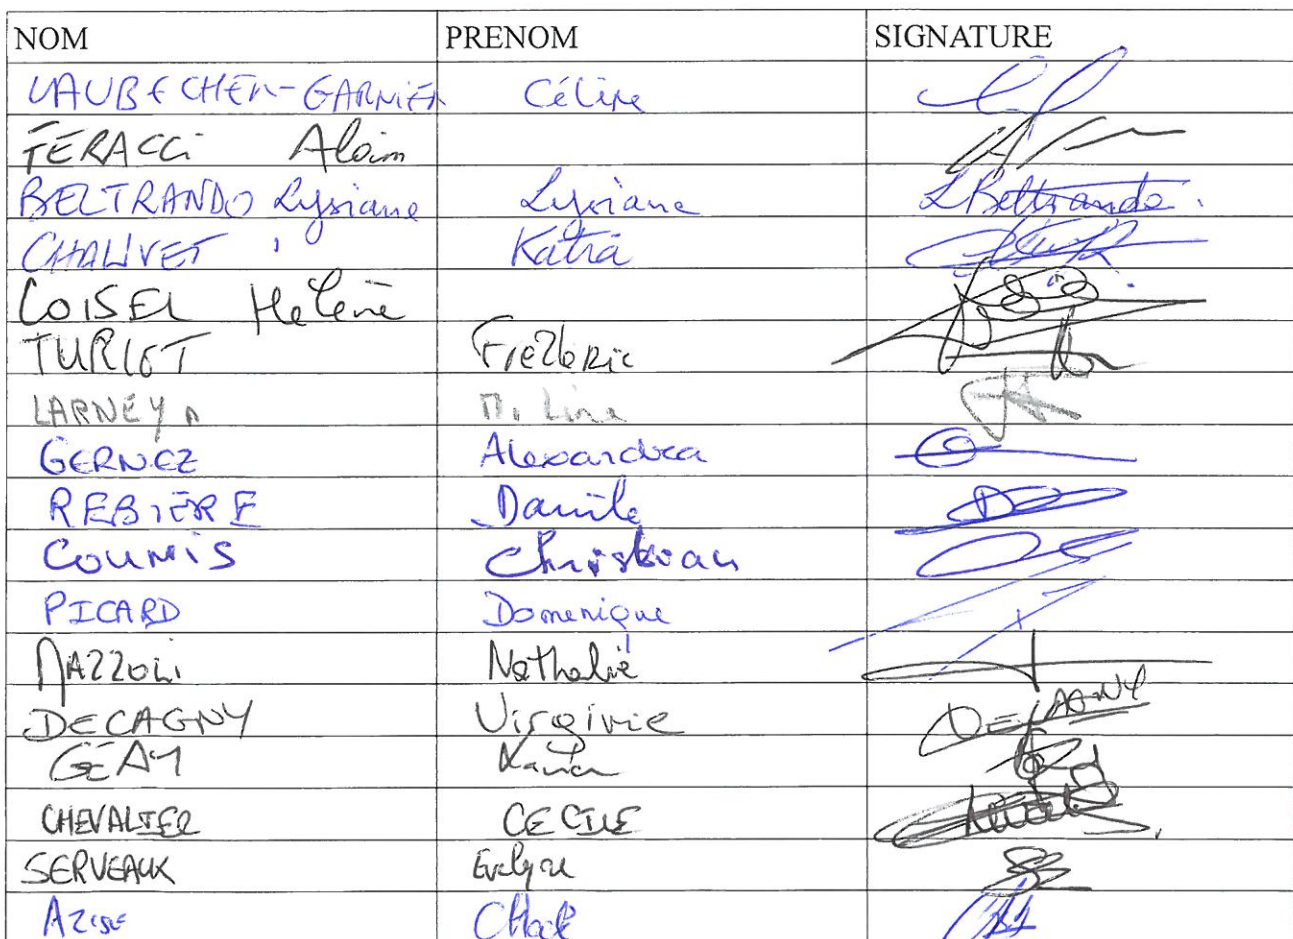 NOM PRENOM SIGNATURE
VAUBECHER-GARNIER Céline
FERACCi Alain
BELTRANDO Lysiane Lysiane L Beltrando
CHALIVET Katia
LOISEL Hélène
TURIOT Frederic
LARNEY
GERNEZ Alexandra
REBIERE Danièle
COUMIS Christian
PICARD Domenique
MAZZOLi Nathalie
DECAGNY Virginie DECAGNY
GEAY
CHEVALIER CECILE
SERVEAUX Evelyne